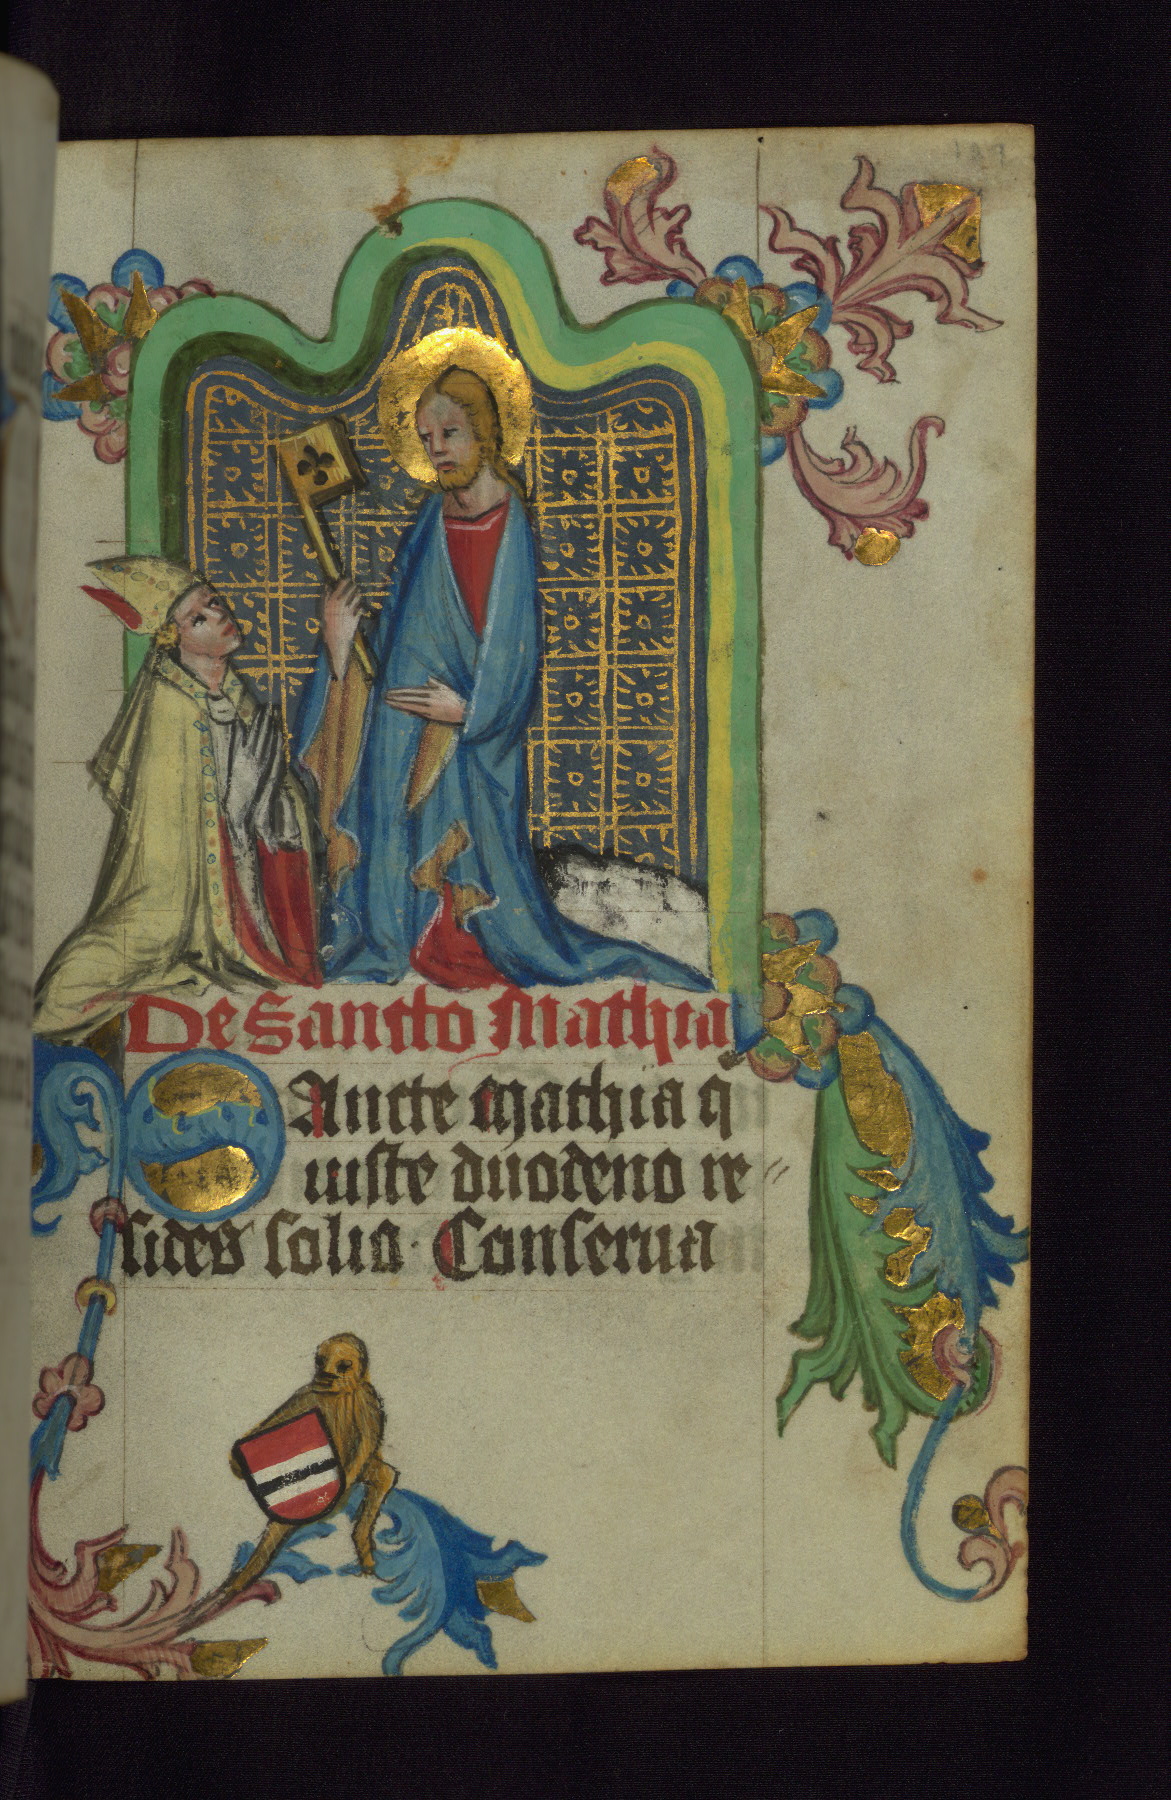 De Sancto Mathia
Sancte Mathia q̄
iuste duodeno re
sides solio. Conserua